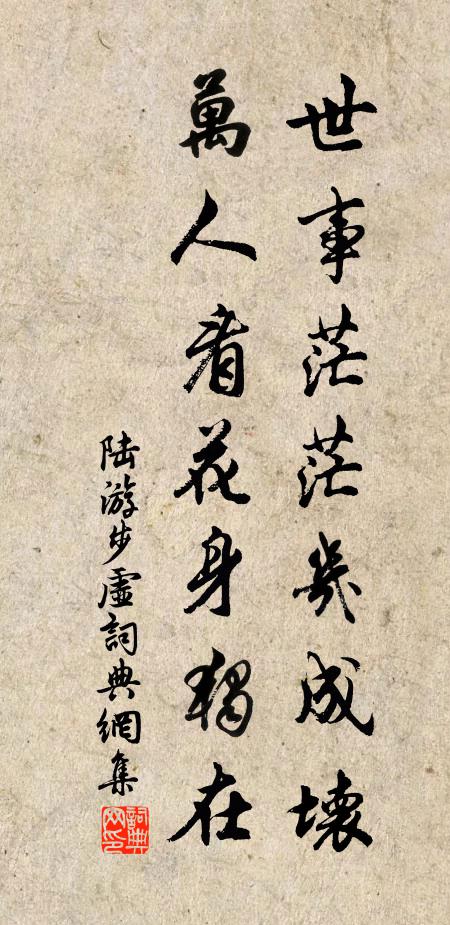 世事茫茫幾成壞
萬人看花身獨在
陆游步虛詞典網集
詞典網印